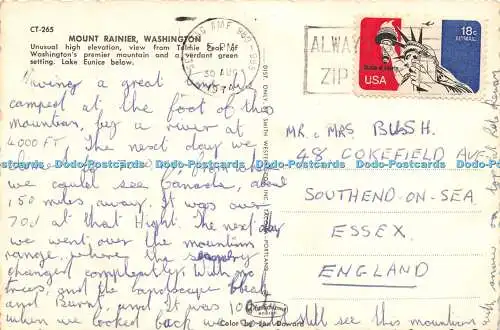 CT-265
MOUNT RAINIER, WASHINGTON
Unusual high elevation, view from Tolmie Peak of
Washington's premier mountain and a verdant green
setting. Lake Eunice below.
Having a great time. We
camped at the foot of this
mountain, by a river at
4000 FT. The next day we
we could see Canada, about
150 miles away. It was over
70d at that Hight. The next day
we went over the mountain
range, where the scenery
changed completely. With no
trees, and the landscape bleak
and Burnt, and it was 100
when we looked back we could
still see this mountain
PM
30 AUG
ALWAY
ZIP
18c
AIRMAIL
USA
MR & MRS BUSH.
48 COKEFIELD AVE
SOUTHEND-ON-SEA
ESSEX.
ENGLAND
Color by
Dodo-Postcards Dodo-Postcards Dodo-Postcards Dodo-Postcards